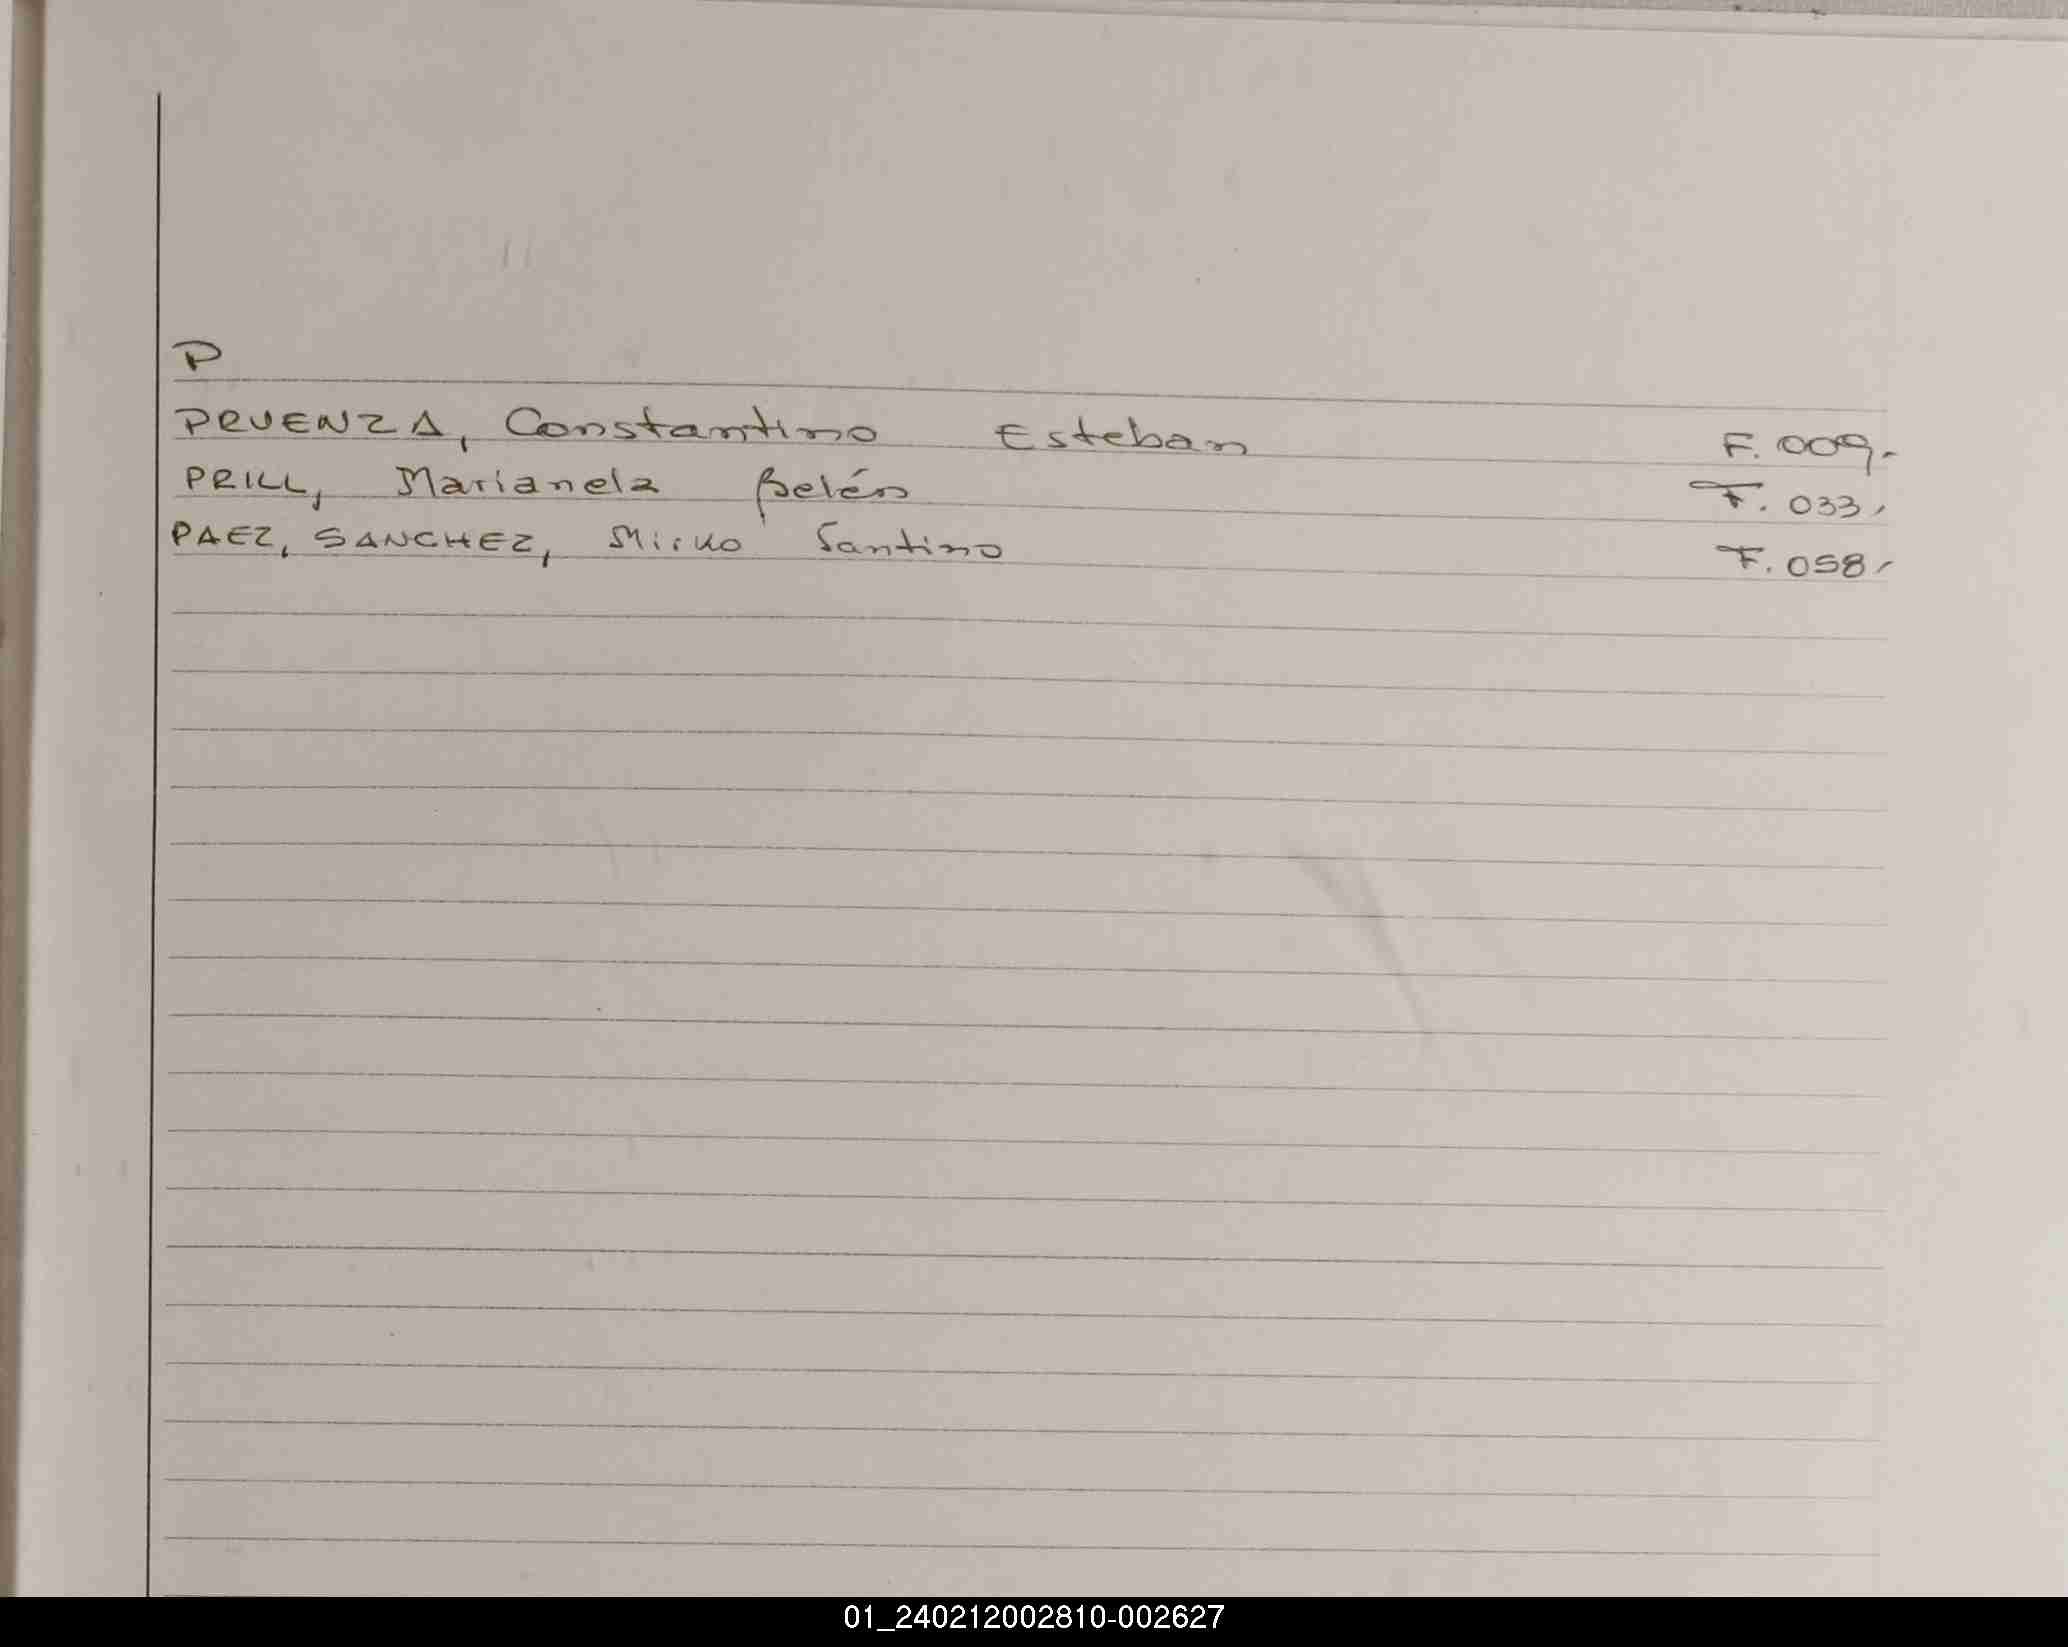 P
PRUENZA, Constantino Esteban F. 009.-
PRILL, Marianela Belén F. 033,
PAEZ, SANCHEZ, Mirko Santino F. 058,
01_240212002810-002627